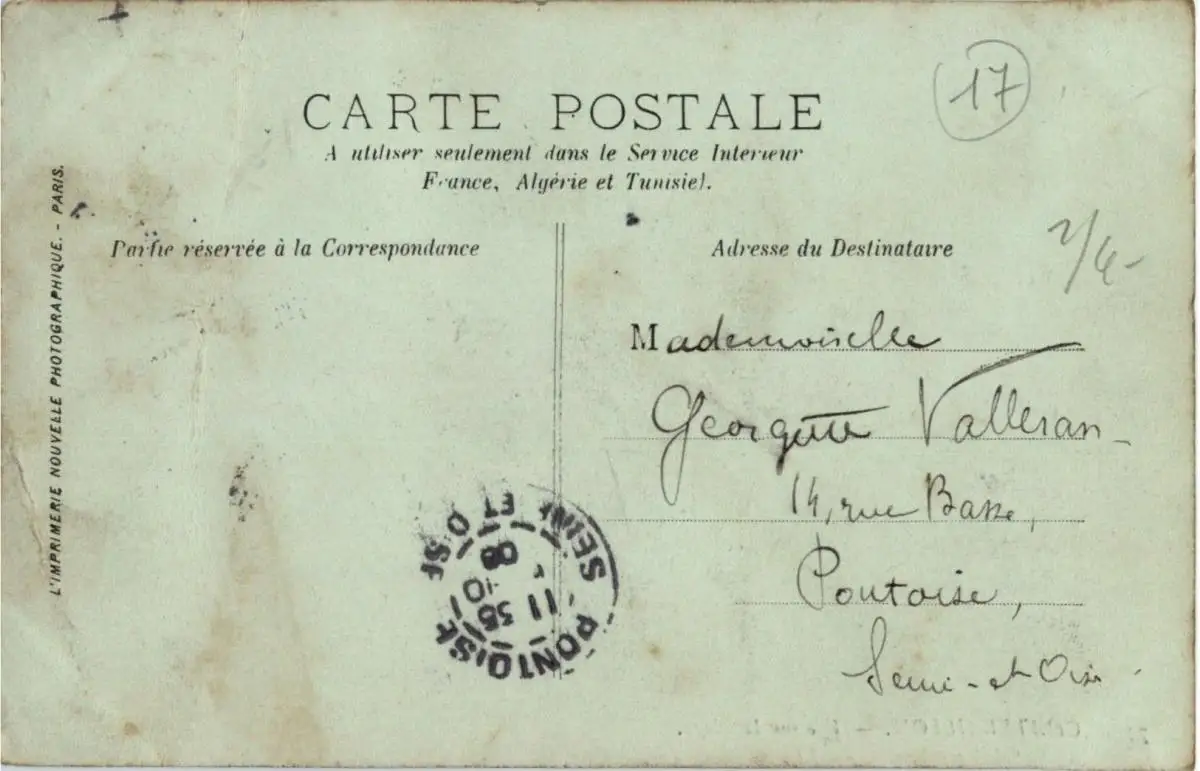 17
CARTE POSTALE
A utiliser seulement dans le Service Interieur
France, Algérie et Tunisie).
Partie réservée à la Correspondance
Adresse du Destinataire
2/6-
L'IMPRIMERIE NOUVELLE PHOTOGRAPHIQUE. - PARIS.
Mademoiselle
Georgette Valleran
14, rue Basse,
Pontoise,
Seine-et-Oise
PONTOISE
SEINE ET OISE
11
35
10
08